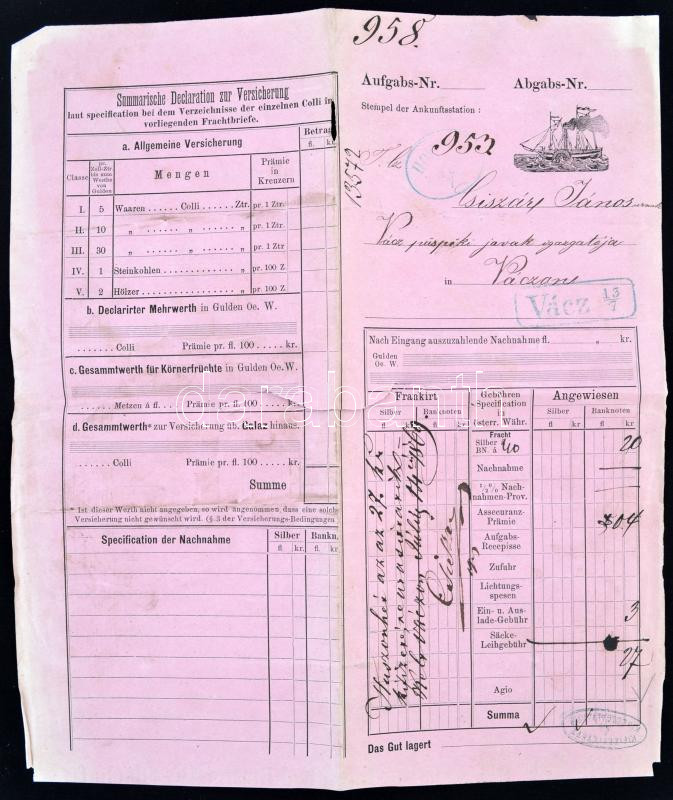 958.
Summarische Declaration zur Versicherung
laut specification bei dem Verzeichnisse der einzelnen Colli im
vorliegenden Frachtbriefe.
a. Allgemeine Versicherung
Betrag
fl. kr.
Classe
pr. Zoll-Ztr bis zum Werthe von Gulden
Mengen
Prämie in Kreuzern
I. 5 Waaren ...... Colli ...... Ztr. pr. 1 Ztr.
II. 10 „ „ „ pr. 1 Ztr
III. 30 „ „ „ pr. 1 Ztr
IV. 1 Steinkohlen ............ „ pr. 100 Z
V. 2 Hölzer ............ „ pr. 100 Z
b. Declarirter Mehrwerth in Gulden Oe. W.
....... Colli Prämie pr. fl. 100 ...... kr.
c. Gesammtwerth für Körnerfrüchte in Gulden Oe.W.
...... Metzen á fl. .... Prämie pr. fl. 100 ...... kr.
d. Gesammtwerth* zur Versicherung üb. Galaz hinaus.
....... Colli Prämie pr. fl. 100 ...... kr.
Summe
* Ist dieser Werth nicht angegeben, so wird angenommen, dass eine solche
Versicherung nicht gewünscht wird. (§ 3 der Versicherungs-Bedingungen
Specification der Nachnahme
Silber Bankn.
fl. kr. fl. kr.
Aufgabs-Nr. Abgabs-Nr.
Stempel der Ankunftsstation:
953
13572
Csiszár János
Vácz püspöki javak igazgatója
in Váczon
Vácz 13/7
Nach Eingang auszuzahlende Nachnahme fl. kr.
Gulden
Oe. W.
Frankirt
Silber Banknoten
fl. kr. fl. kr.
Gebühren Specification in österr. Währ.
Angewiesen
Silber Banknoten
fl. kr. fl. kr.
Fracht
Silber
BN. á 40 20
Nachnahme
½ % Nachnahmen-Prov.
Assecuranz-Prämie 04
Aufgabs-Recepisse
Zufuhr
Lichtungsspesen
Ein- u. Auslade-Gebühr 3
Säcke-Leihgebühr
27
Agio
Summa
Huszonhét az az 27 kr
Váczon July 14 1869
Das Gut lagert
darabanth